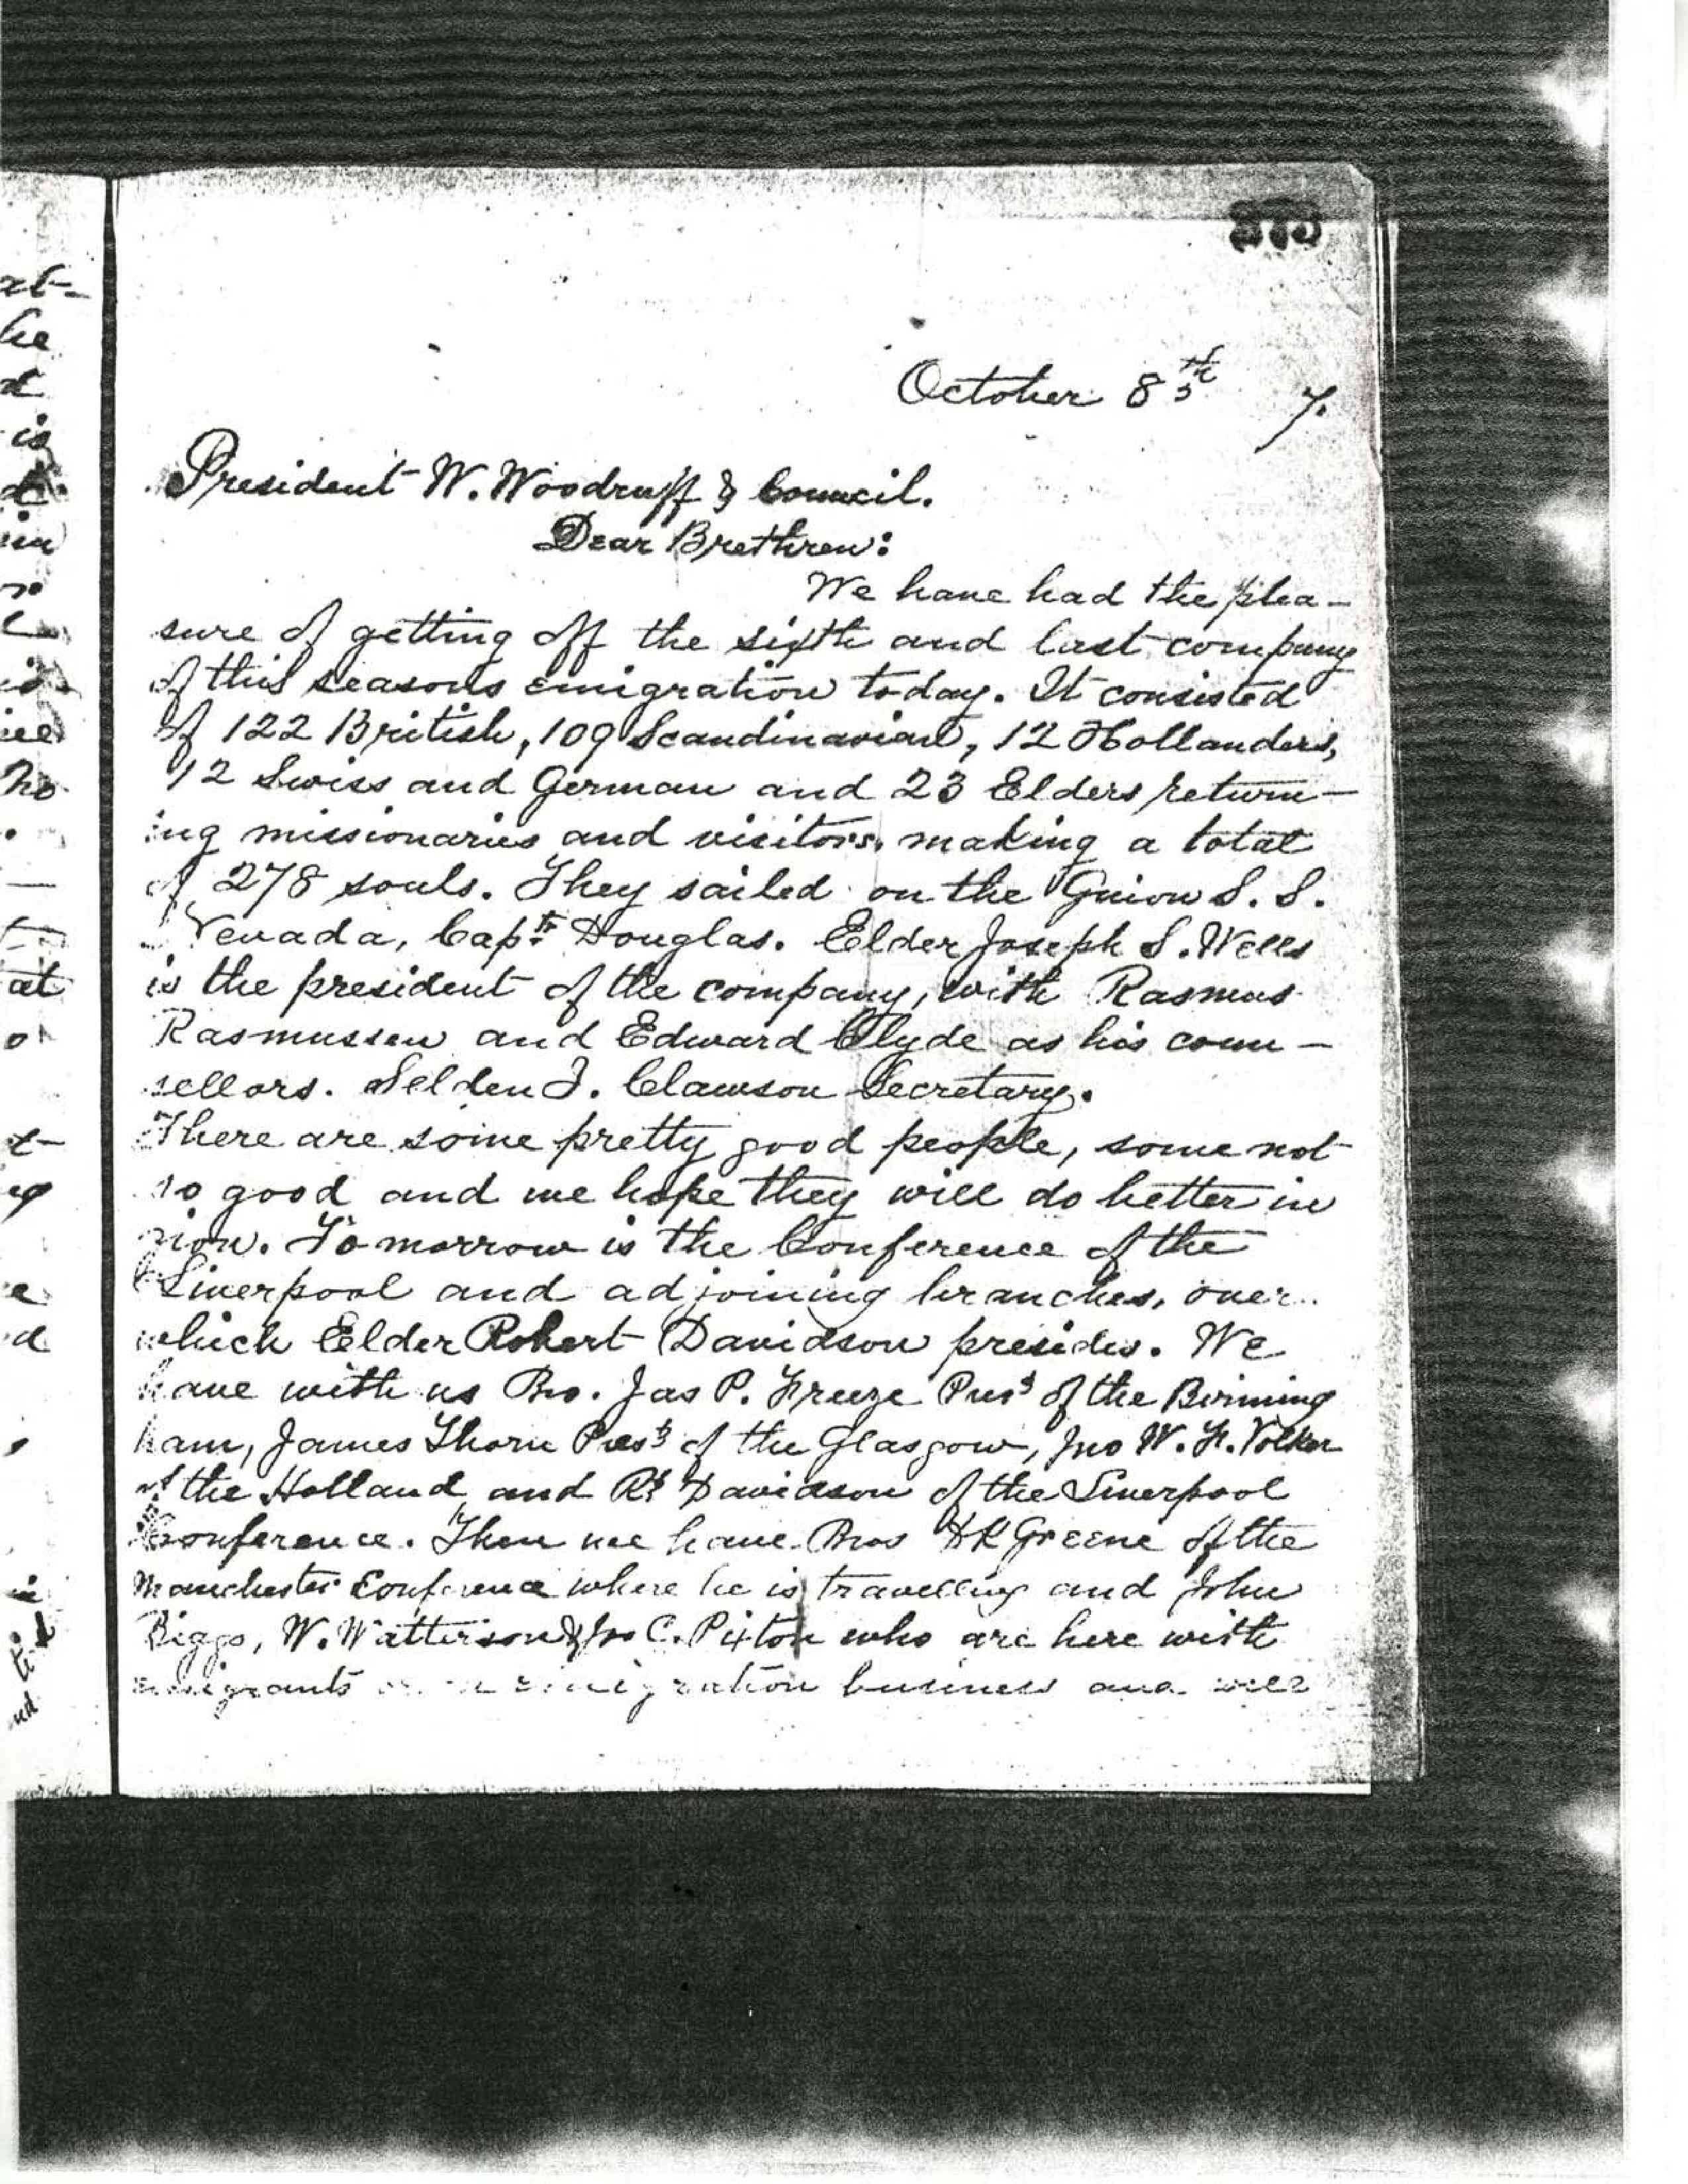 October 8th 7.
President W. Woodruff & Council.
Dear Brethren:
We have had the plea-
sure of getting off the sixth and last company
of this seasons emigration today. It consisted
of 122 British, 109 Scandinavian, 12 Hollanders,
12 Swiss and German and 23 Elders return-
ing missionaries and visitors, making a total
of 278 souls. They sailed on the Guion S. S.
Nevada, Capt. Douglas. Elder Joseph S. Wells
is the president of the company, with Rasmus
Rasmussen and Edward Clyde as his coun-
sellors. Selden I. Clawson Secretary.
There are some pretty good people, some not
so good and we hope they will do better in
Zion. Tomorrow is the Conference of the
Liverpool and adjoining branches, over
which Elder Robert Davidson presides. We
have with us Bro. Jas P. Freeze Prest of the Birming
ham, James Thorn Prest of the Glasgow, Jno W. F. Volker
of the Holland and Rt Davidson of the Liverpool
Conference. Then we have Bros HR Greene of the
Manchester Conference where he is travelling and John
Biggs, W. Watterson & Jno C. Pixton who are here with
emigrants emigration business and will
at-
he
d
is
at
o
e
d